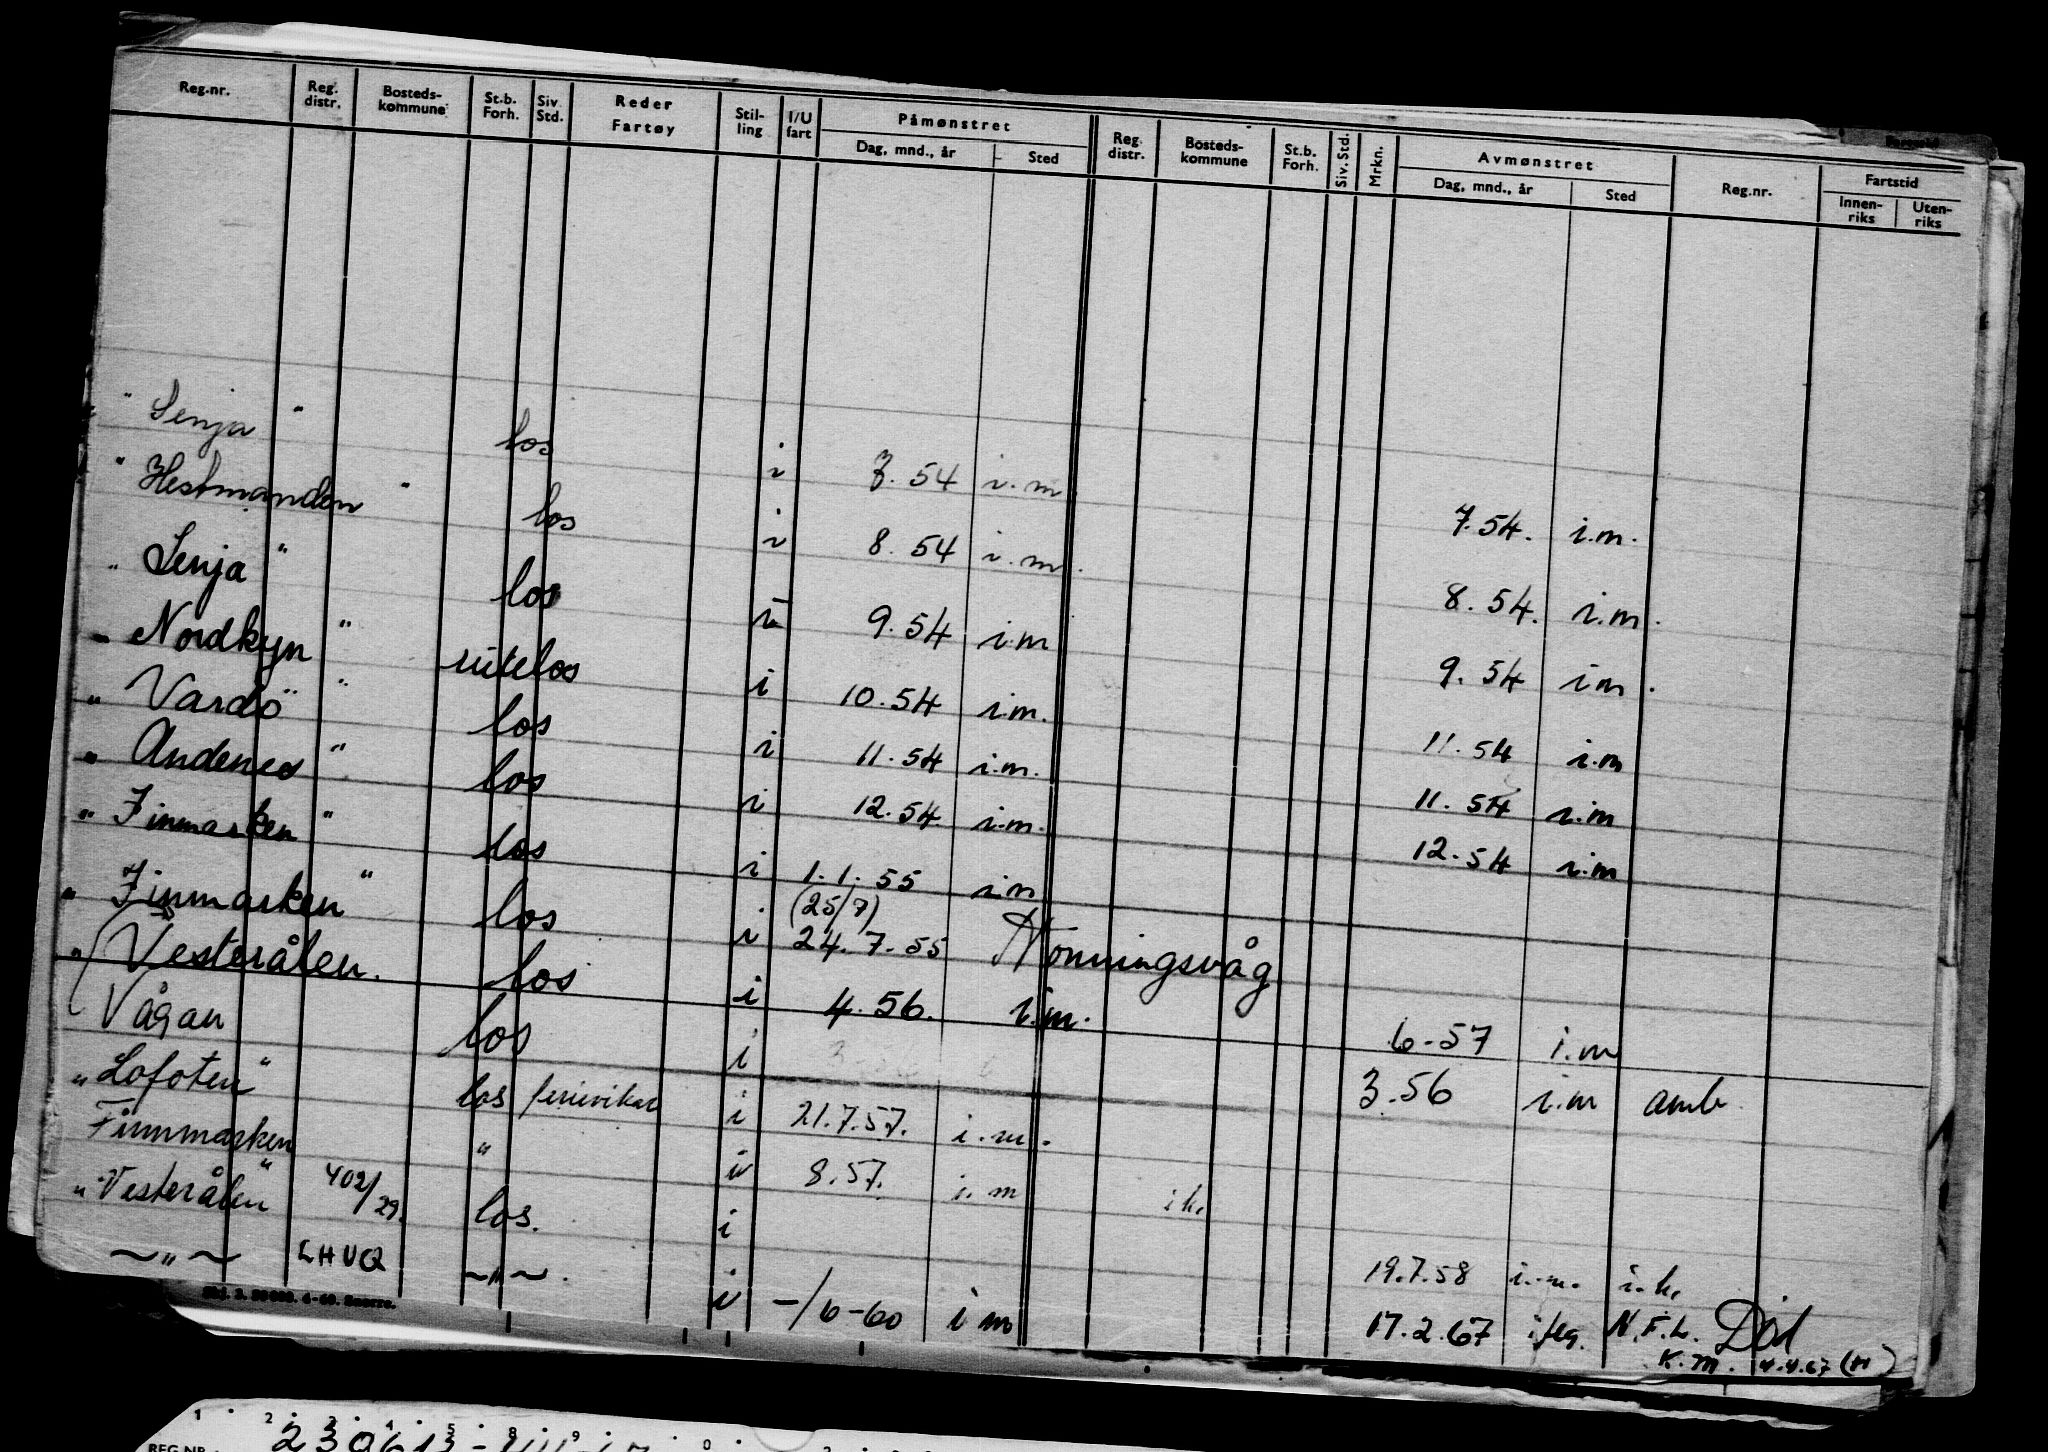 Reg.nr. Reg. distr. Bosteds-kommune St.b. Forh. Siv. Std. Reder Fartøy Stil-ling I/U fart Påmønstret Dag, mnd., år Sted Reg. distr. Bosteds-kommune St.b. Forh. Siv. Std. Mrkn. Avmønstret Dag, mnd., år Sted Reg.nr. Fartstid Innen-riks Uten-riks
" Senja " los i 3.54 i.m 7.54. i.m.
" Hestmanden " los i 8.54 i.m. 8.54. i.m.
" Senja " los i 9.54 i.m 9.54 i m.
" Nordkyn " rutelos i 10.54 i.m. 11.54 i.m
" Vardö " los i 11.54 i.m. 11.54 i.m
" Andenes " los i 12.54 i.m. 12.54 i.m
" Finmarken " los i 1.1.55 i.m
(25/7)
" Finmarken " los i 24.7.55 Honningsvåg
" Vesterålen. los i 4.56. i.m. 6-57 i.m
Vågan los i 3.56 i.m amb.
" Lofoten " los ferievikar i 21.7.57. i.m.
Finnmarken " i 8.57. i.m i k.
" Vesterålen " 402/29. los. i 19.7.58 i.m. i.k.
~"~ LHUQ ~"~. i -/6-60 i m 17.2.67 N.F.L. Död
K.M. 4.4.67 (H)
1 2 3 4 5 8 9 0
REG.NR.